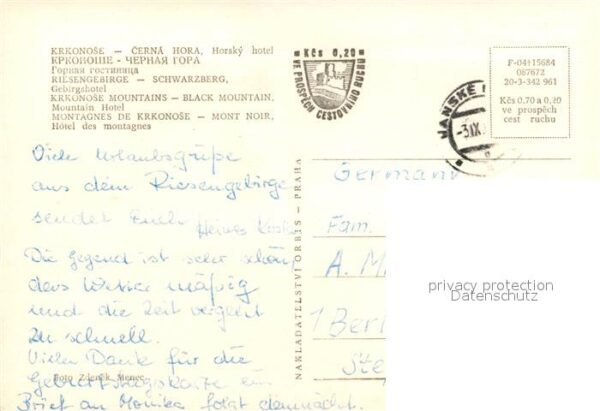 KRKONOŠE — ČERNÁ HORA, Horský hotel
КРКОНОШЕ - ЧЕРНАЯ ГОРА
Горная гостиница
RIESENGEBIRGE — SCHWARZBERG,
Gebirgshotel
KRKONOŠE MOUNTAINS — BLACK MOUNTAIN,
Mountain Hotel
MONTAGNES DE KRKONOŠE — MONT NOIR,
Hôtel des montagnes
Kčs 0,20
VE PROSPĚCH CESTOVNÍHO RUCHU
F-04†15684
087672
20-3-342 961
Kčs 0.70 a 0,20
ve prospěch
cest ruchu
JANSKÉ
-3.IX
Viele Urlaubsgrüße
aus dem Riesengebirge
sendet Euch
Die Gegend ist sehr schön,
das Wetter mäßig
und die Zeit vergeht
zu schnell.
Vielen Dank für die
Geburtstagskarte ein
Brief an Monika folgt demnächst.
Foto Zdeněk Menec
NAKLADATELSTVÍ ORBIS — PRAHA
Germany
Fam.
A. M
1 Berl
privacy protection
Datenschutz